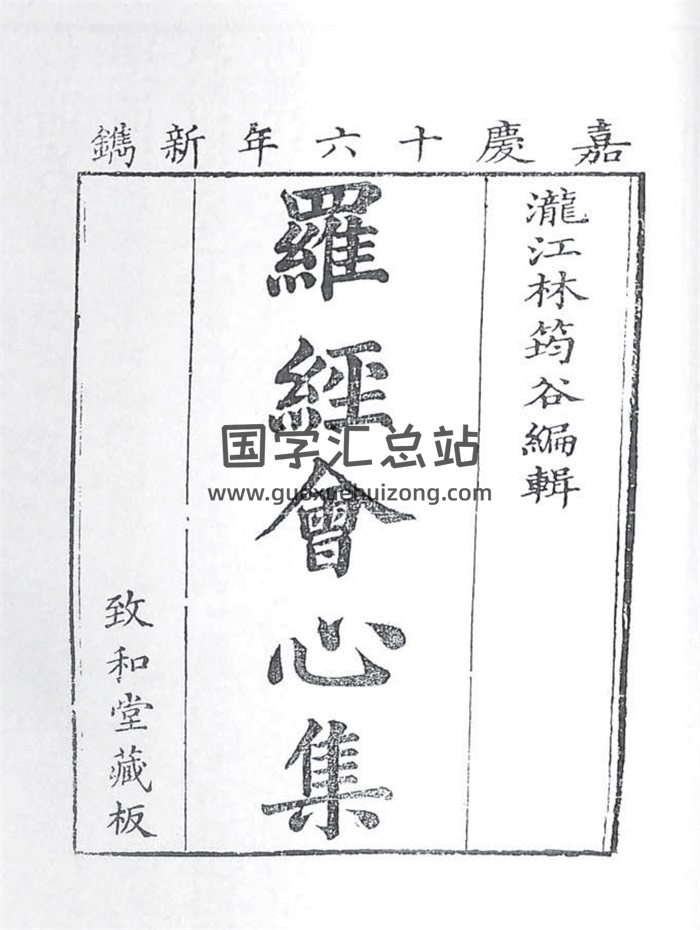 嘉慶十六年新鐫
瀧江林筠谷編輯
羅經會心集
致和堂藏板
国学汇总站
www.guoxuehuizong.com